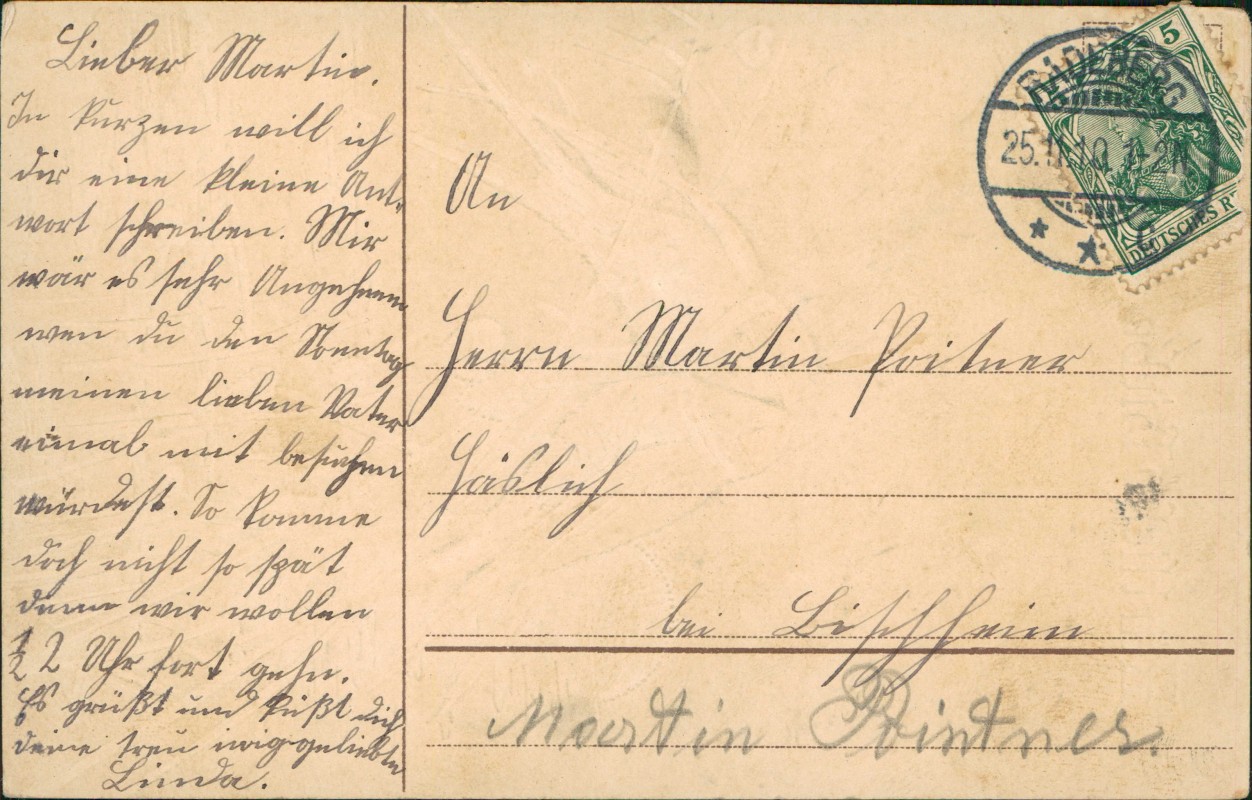 Lieber Martin.
In kurzen will ich
dir eine kleine Ant-
wort schreiben. Mir
wär es sehr Angenehm
wen du den Sonntag
meinen lieben Vater
einmal mit besuchen
würdest. So komme
doch nicht so spät
denn wir wollen
½ 2 Uhr fort gehn.
Es grüßt und küßt dich
deine treu geliebte
Linda.
An
Herrn Martin Poitner
Häslich
bei Bischheim
Martin Pointner.
RADEBERG
25.11.10. 1-2N
5
DEUTSCHES R